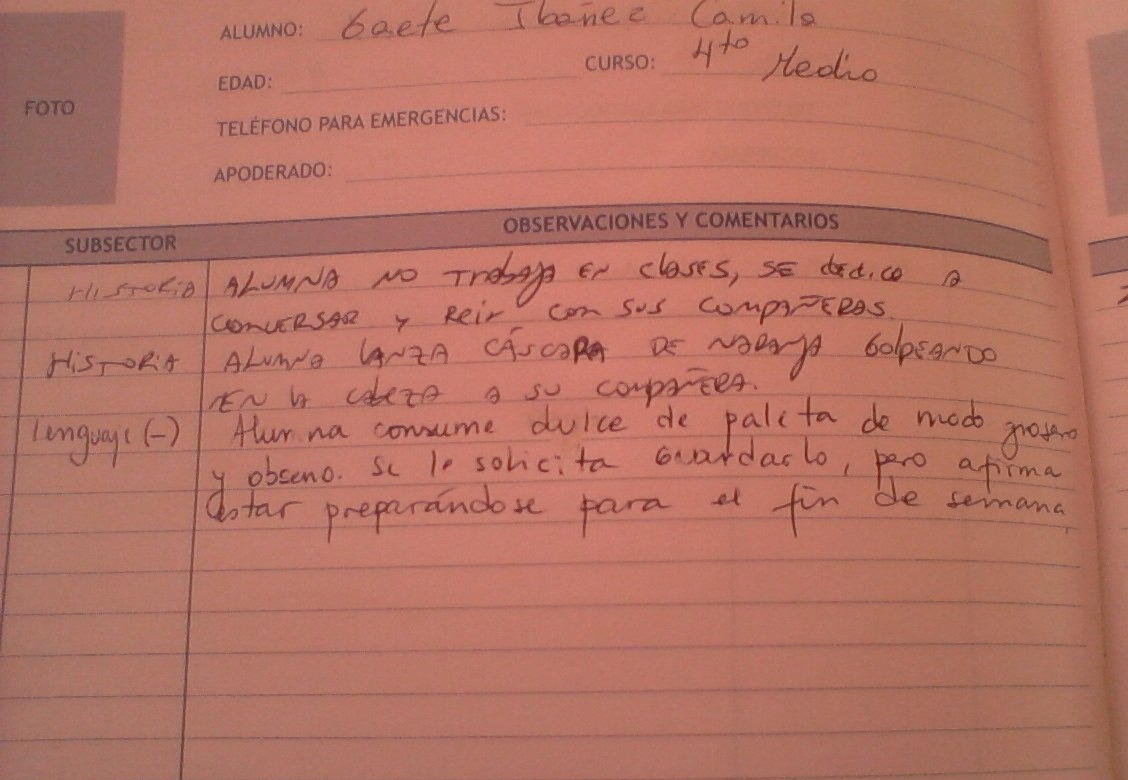 ALUMNO: Gaete Ibañez Camila
FOTO
EDAD:
CURSO: 4to Medio
TELÉFONO PARA EMERGENCIAS:
APODERADO:
SUBSECTOR OBSERVACIONES Y COMENTARIOS
HISTORIA ALUMNA NO Trabaja EN clases, SE dedica A
CONVERSAR y Reir con sus COMPAÑERAS.
HISTORIA ALUMNA LANZA CÁSCARA DE NARANJA GOLPEANDO
EN la CABEZA A SU COMPAÑERA.
Lenguaje (-) Alumna consume dulce de paleta de modo grosero
y obseno. Se le solicita Guardarlo, pero afirma
estar preparándose para el fin de semana.